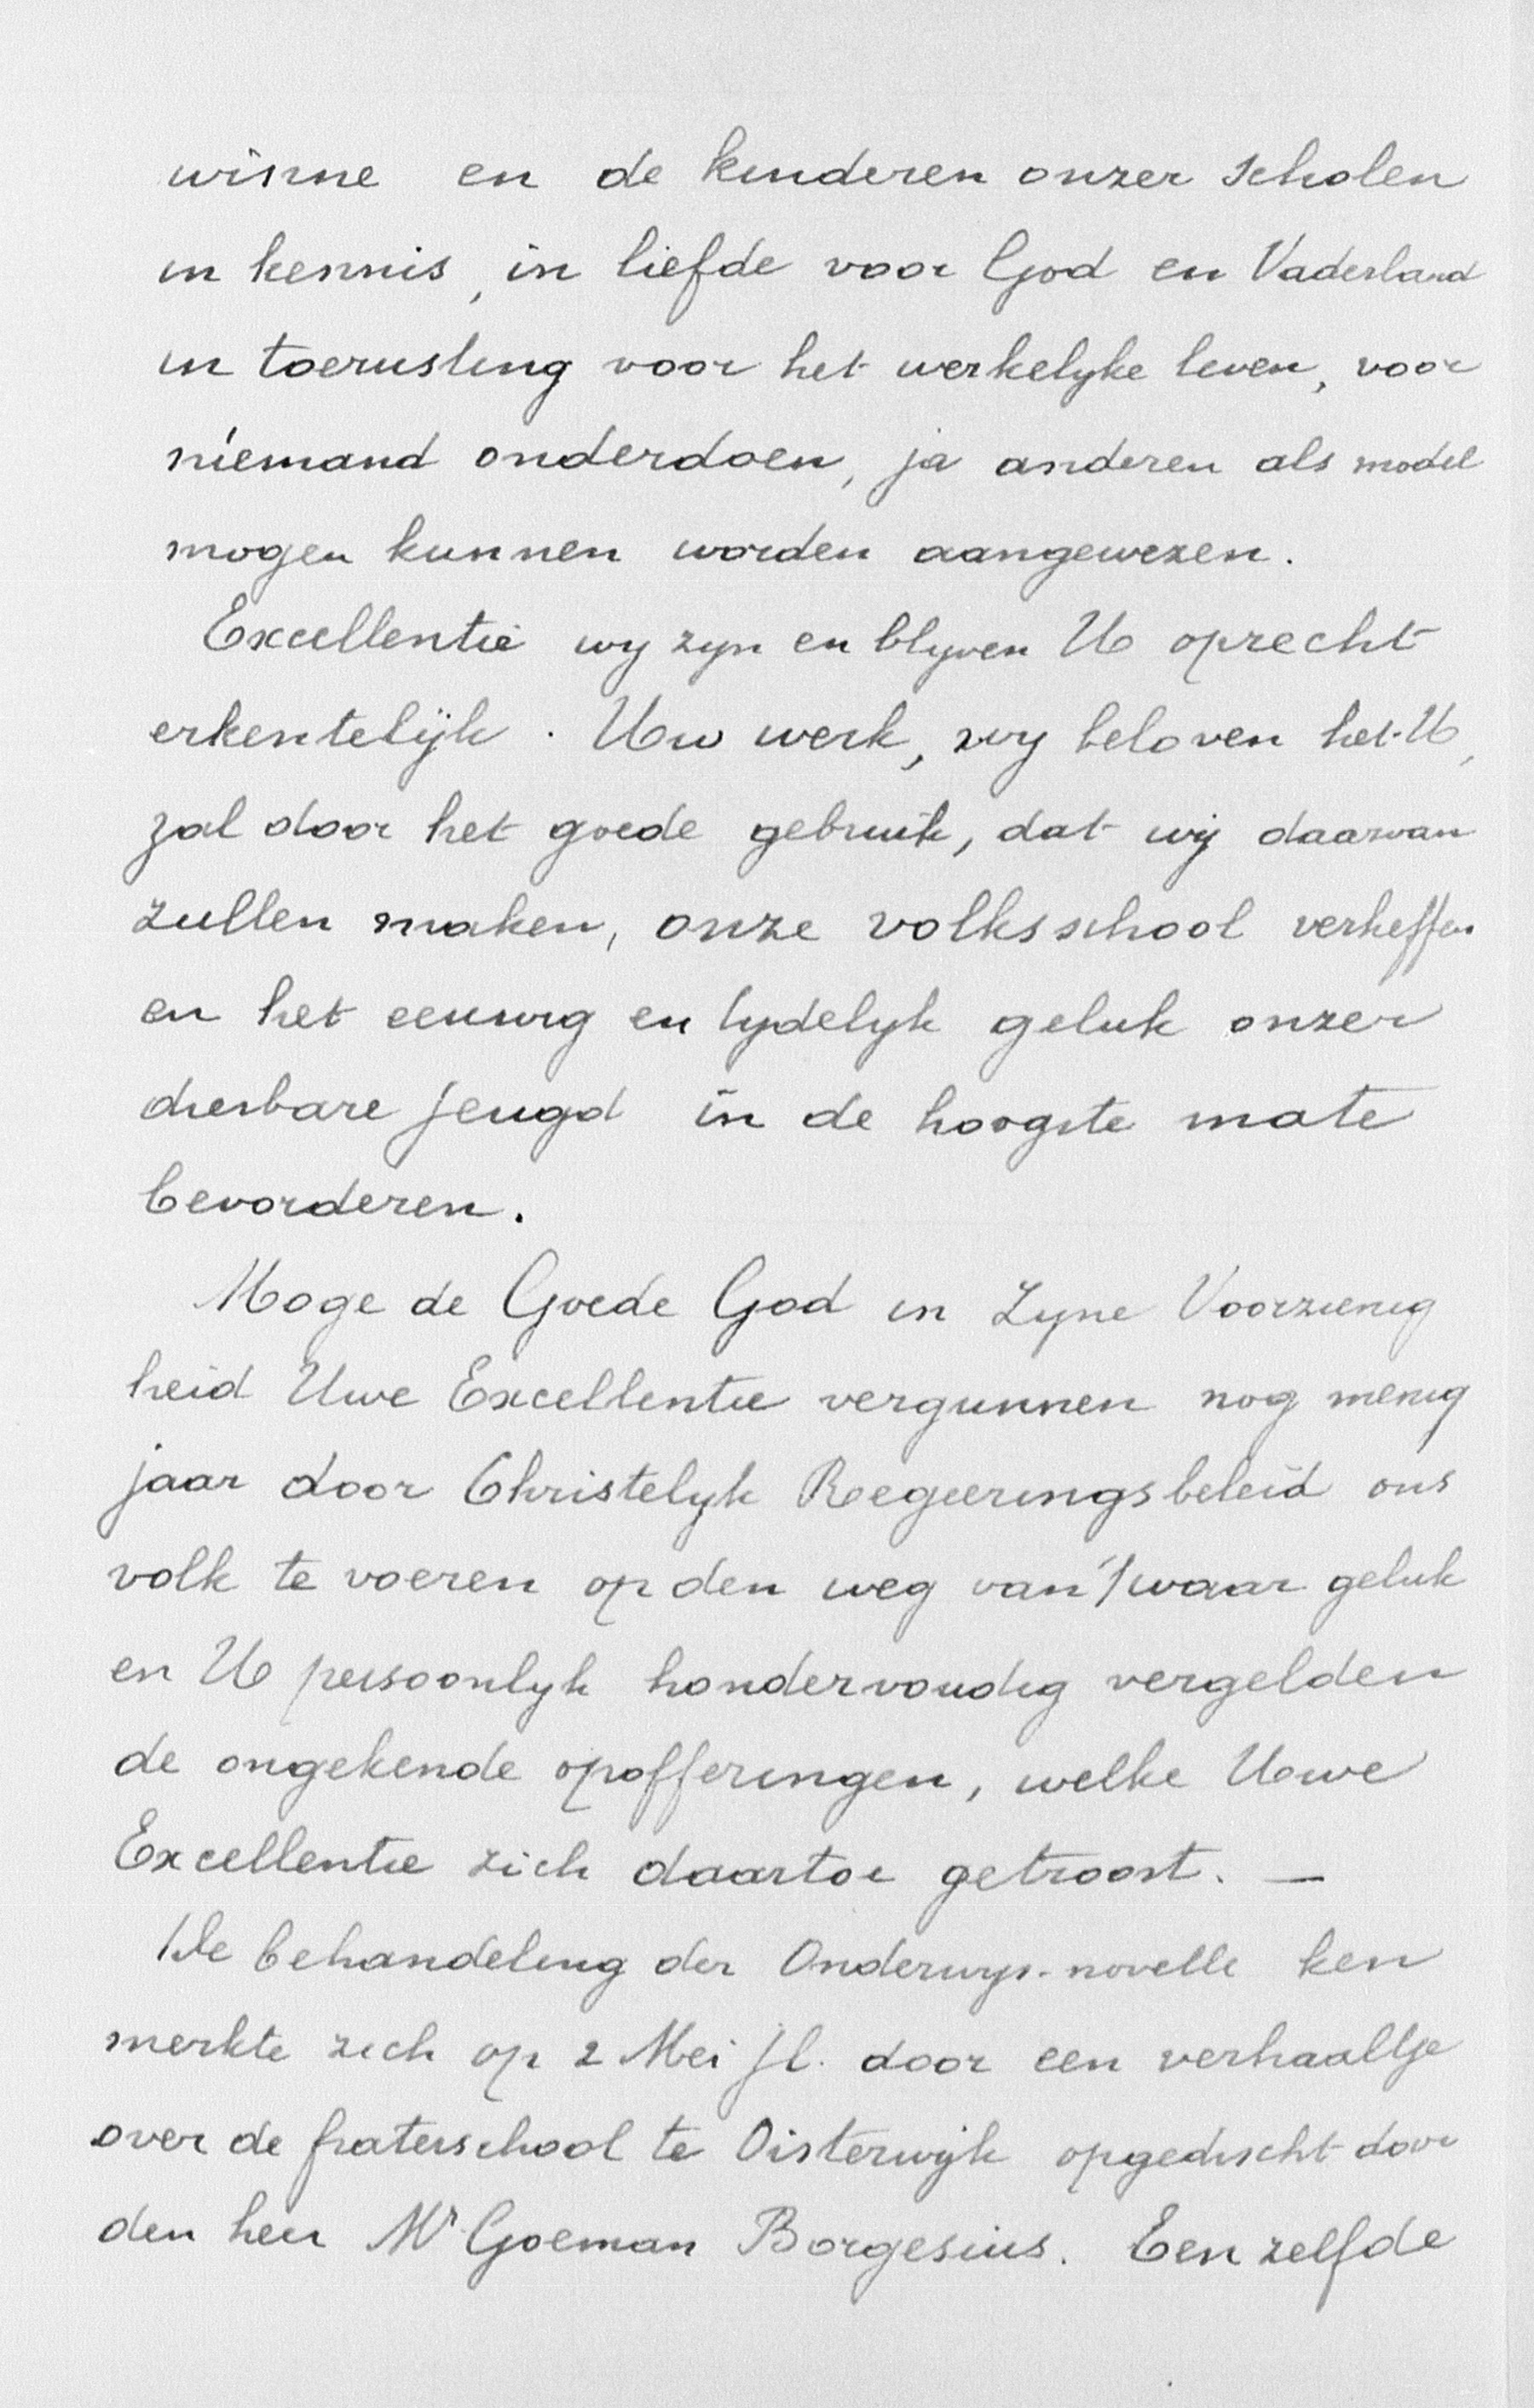 winne en de kinderen onzer scholen
in kennis, in liefde voor God en Vaderland
in toerusting voor het werkelyke leven, voor
niemand onderdoen, ja anderen als model
mogen kunnen worden aangewezen.
Excellentie wy zyn en blyven U oprecht
erkentelijk. Uw werk, wy beloven het U,
zal door het goede gebruik, dat wij daarvan
zullen maken, onze volksschool verheffen
en het eeuwig en tydelyk geluk onzer
dierbare jeugd in de hoogste mate
bevorderen.
Moge de Goede God in Zyne Voorzienig
heid Uwe Excellentie vergunnen nog menig
jaar door Christelyk Regeeringsbeleid ons
volk te voeren op den weg van 't waar geluk
en U persoonlyk hondervoudig vergelden
de ongekende opofferingen, welke Uwe
Excellentie zich daartoe getroost. —
De behandeling der Onderwys-novelle ken
merkte zich op 2 Mei jl. door een verhaaltje
over de fraterschool te Oisterwijk opgedischt door
den heer Mr Goeman Borgesius. Een zelfde